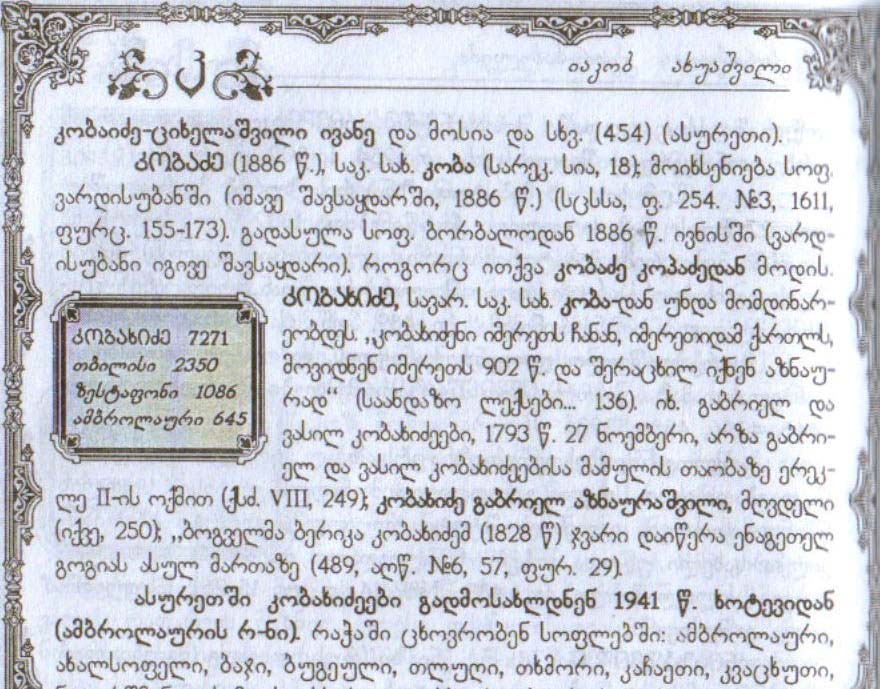 კ
იაკობ ახუაშვილი
კობაიძე-ციხელაშვილი ივანე და მოსია და სხვ. (454) (ასურეთი).
კობაძე (1886 წ.), საკ. სახ. კობა (სარეკ. სია, 18); მოიხსენიება სოფ.
ვარდისუბანში (იმავე შავსაყდარში, 1886 წ.) (სცსსა, ფ. 254. №3, 1611,
ფურც. 155-173). გადასულა სოფ. ბორბალოდან 1886 წ. ივნისში (ვარდ-
ისუბანი იგივე შავსაყდარი). როგორც ითქვა კობაძე კოპაძედან მოდის.
კობახიძე, სავარ. საკ. სახ. კობა-დან უნდა მომდინარ-
ეობდეს. „კობახიძენი იმერეთს ჩანან, იმერეთიდამ ქართლს,
მოვიდნენ იმერეთს 902 წ. და შერაცხილ იქნენ აზნაუ-
რად“ (საანდაზო ლექსები... 136). იხ. გაბრიელ და
ვასილ კობახიძეები, 1793 წ. 27 ნოემბერი, არზა გაბრი-
ელ და ვასილ კობახიძეებისა მამულის თაობაზე ერეკ-
ლე II-ის ოქმით (ქსძ. VIII, 249); კობახიძე გაბრიელ აზნაურაშვილი, მღვდელი
(იქვე, 250); „ბოგველმა ბერიკა კობახიძემ (1828 წ) ჯვარი დაიწერა ენაგეთელ
გოგიას ასულ მართაზე (489, აღწ. №6, 57, ფურ. 29).
კობახიძე 7271
თბილისი 2350
ზესტაფონი 1086
ამბროლაური 645
ასურეთში კობახიძეები გადმოსახლდნენ 1941 წ. ხოტევიდან
(ამბროლაურის რ-ნი). რაჭაში ცხოვრობენ სოფლებში: ამბროლაური,
ახალსოფელი, ბაჯი, ბუგეული, თლუღი, თხმორი, კაჩაეთი, კვაცხუთი,